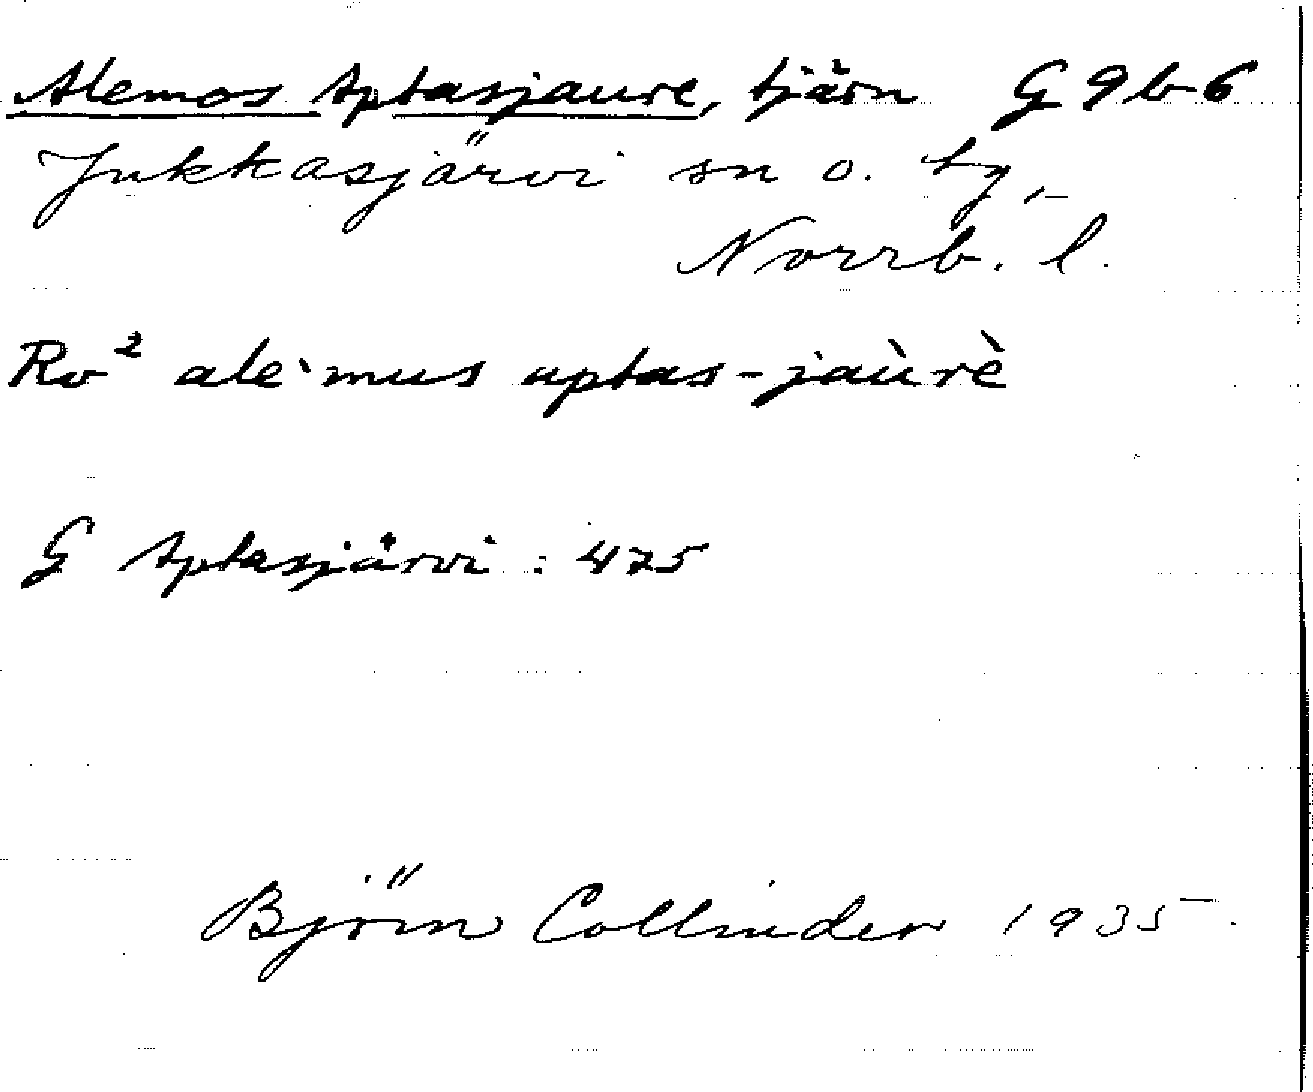 Alemos Aptasjaure, tjärn G 9 b 6
Jukkasjärvi sn o. tg,
Norrb. l.
Rv² ale`mus aptas-jaùrè
G Aptasjärvi : 475
Björn Collinder 1935